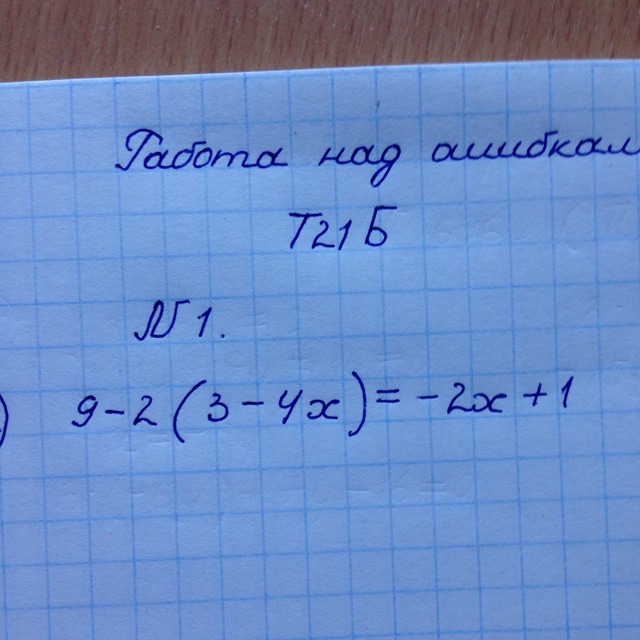 Работа над ошибкам
Т21Б
№1.
) 9-2(3-4x)=-2x+1